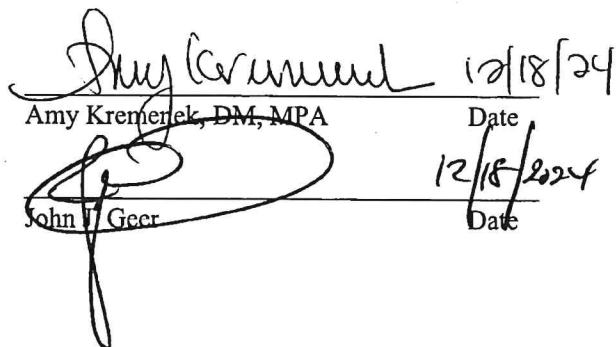 Amy Kremenek 12/18/24
Amy Kremenek, DM, MPA Date
12/18/2024
John Geer Date